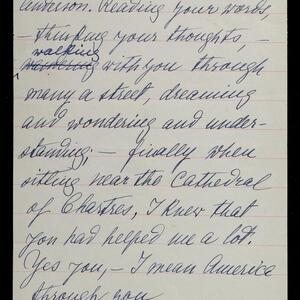 anderson. Reading your words,
– thinking your thoughts, –
walking
with you through
many a street, dreaming
and wondering and under-
standing; – finally when
sitting near the Cathedral
of Chartres, I knew that
you had helped me a lot.
Yes you, – I mean America
through you